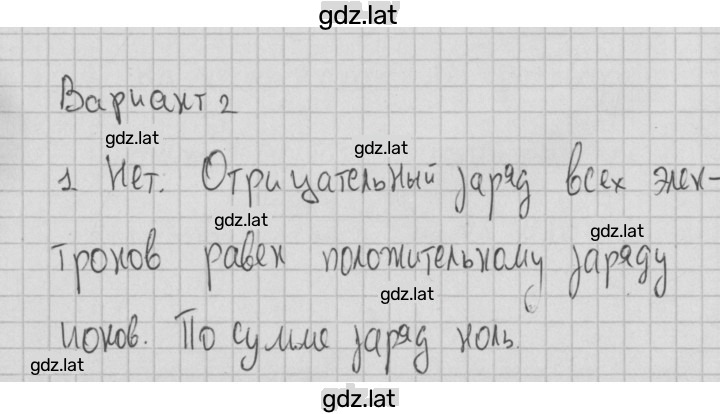 gdz.lat
Вариант 2
gdz.lat
gdz.lat
1 Нет. Отрицательный заряд всех элек-
gdz.lat
gdz.lat
тронов равен положительному заряду
gdz.lat
ионов. По сумме заряд ноль.
gdz.lat
gdz.lat